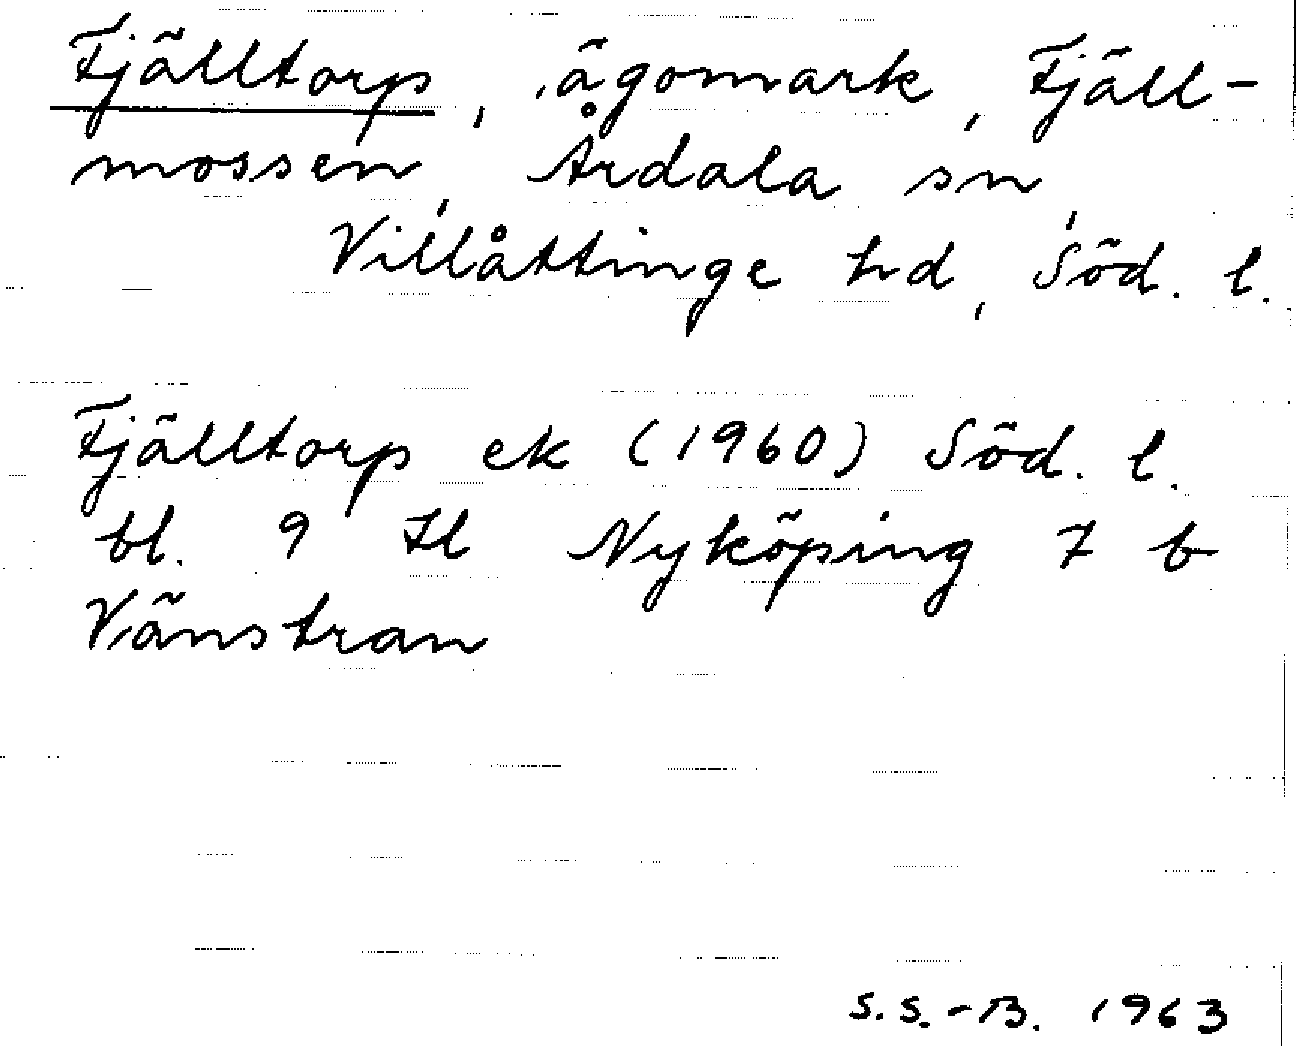 Fjälltorp, ägomark, Fjäll-
mossen, Årdala sn,
Villåttinge hd, Söd. l.
Fjälltorp ek (1960) Söd. l.
bl. 9 H Nyköping 7 b
Vänstran
S.S.-B. 1963